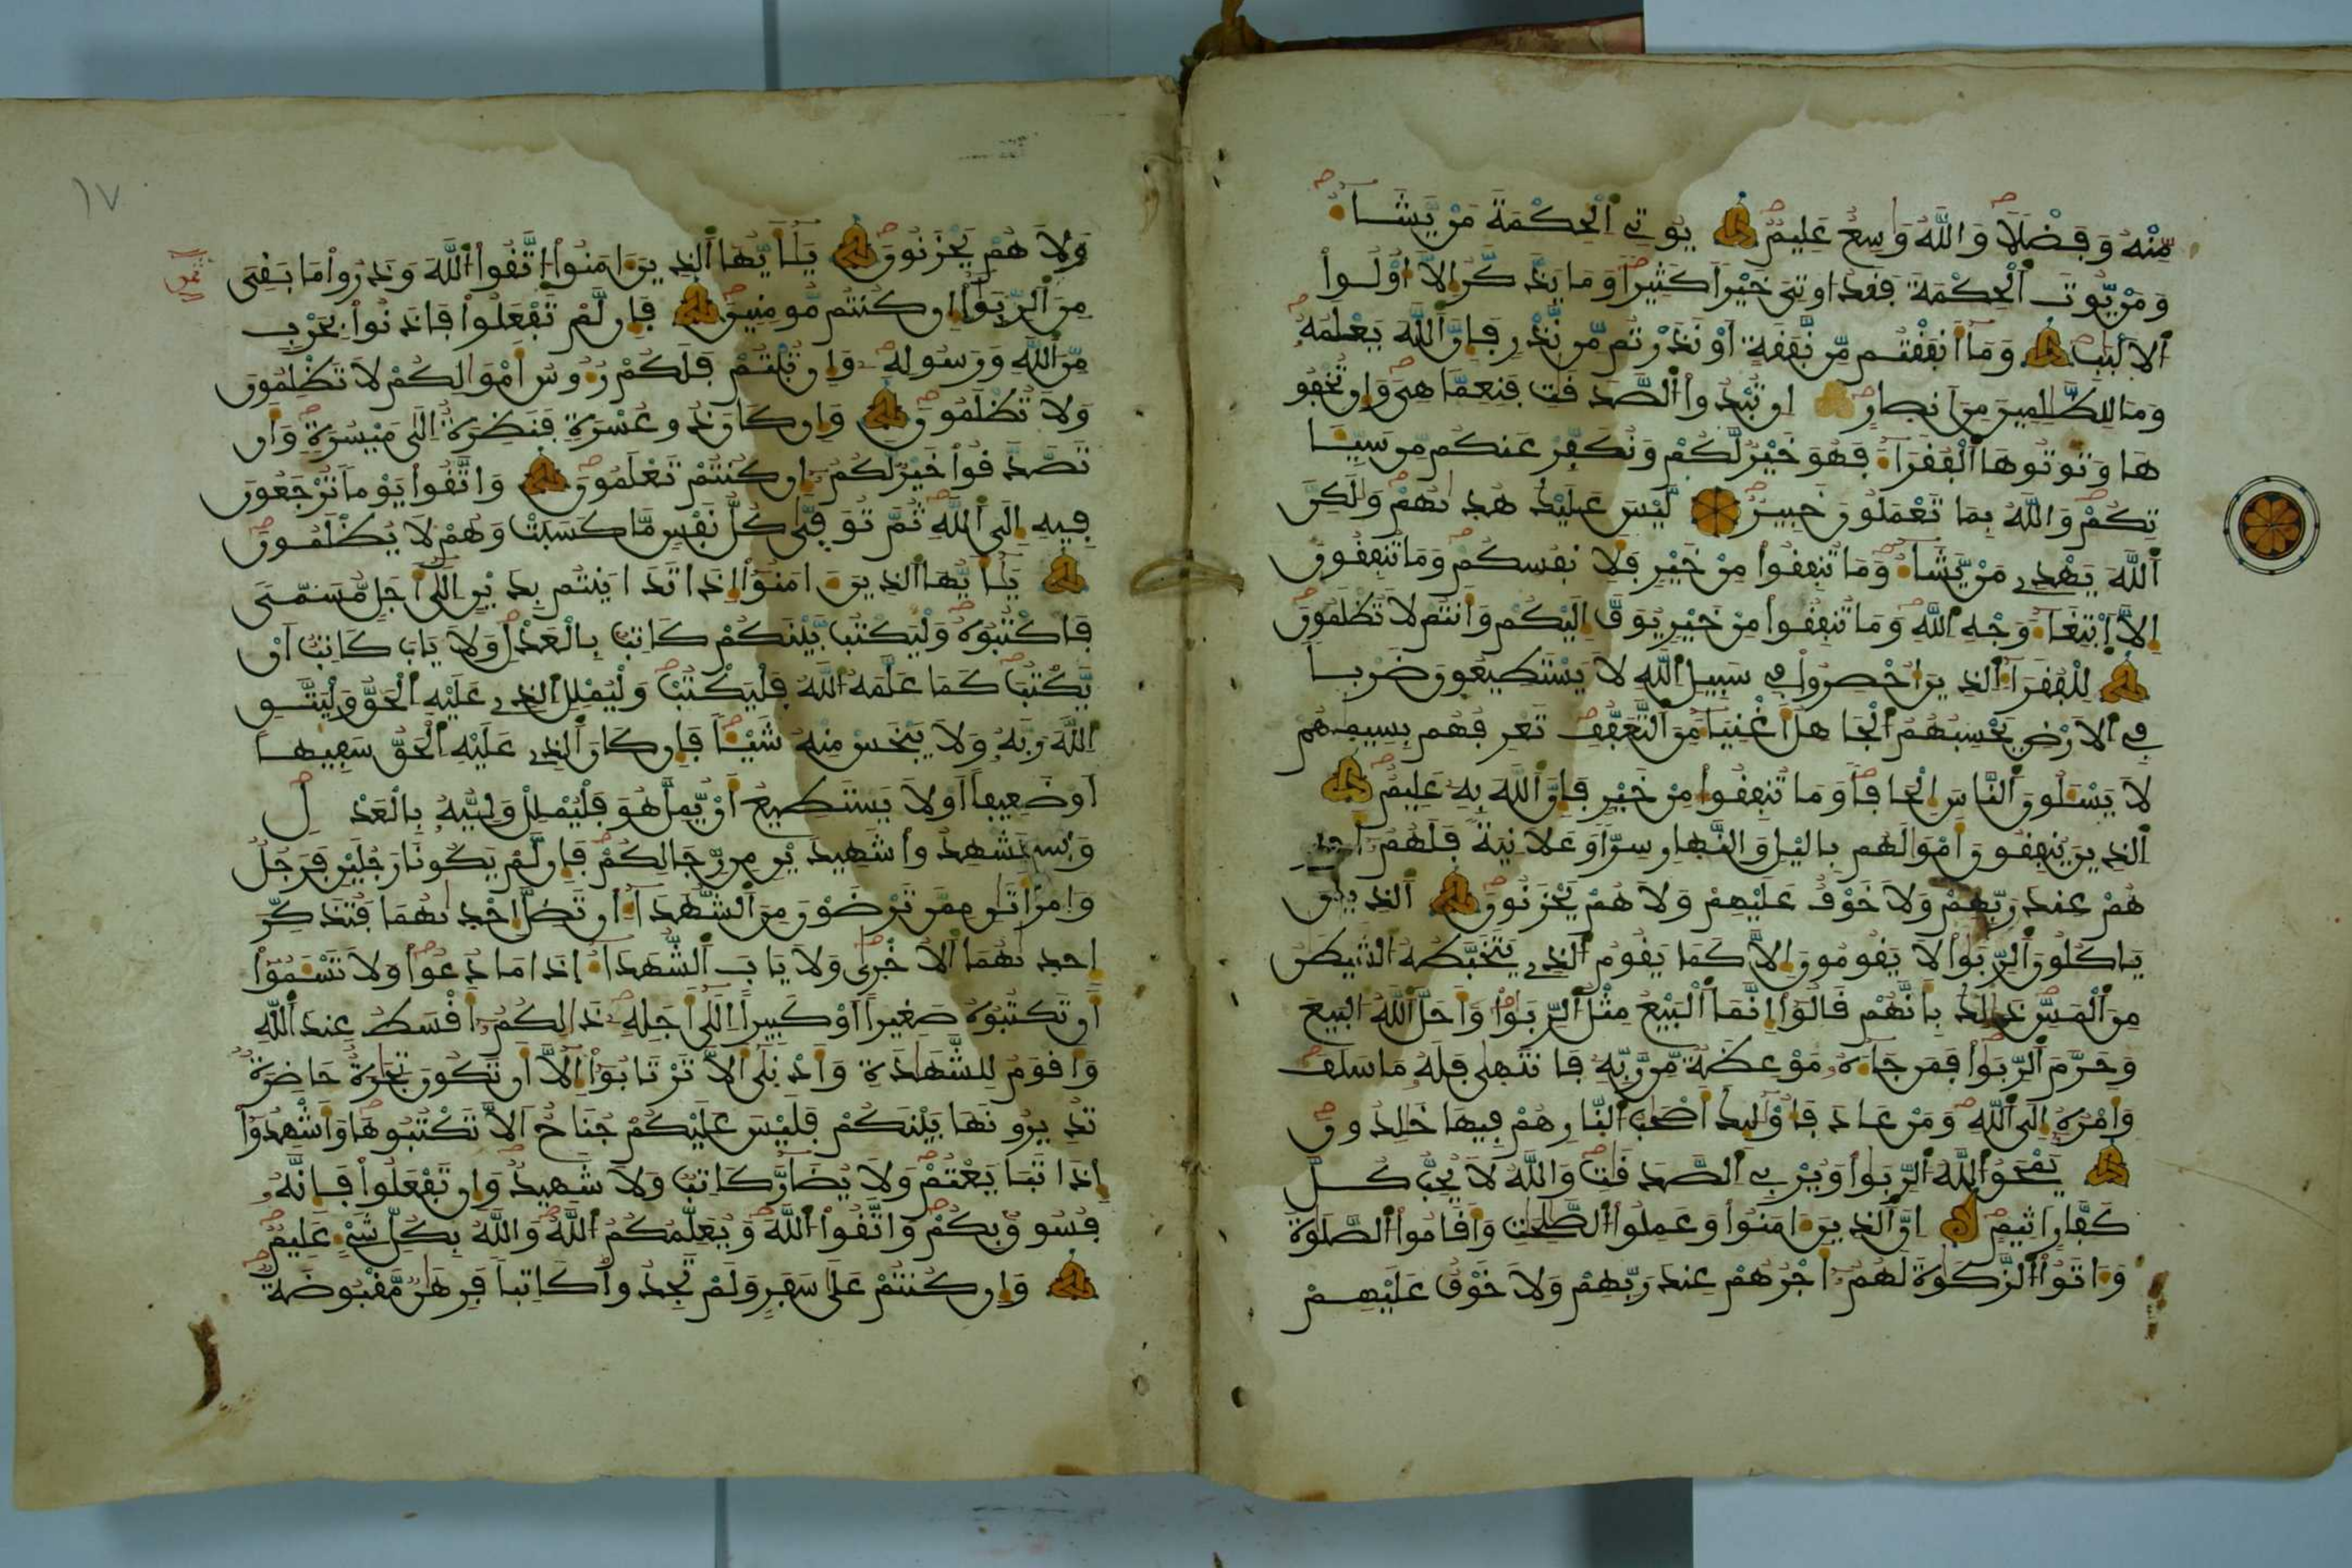 مِّنْهُ وَفَضْلًا وَاللَّهُ وَاسِعٌ عَلِيمٌ يُوتِي الْحِكْمَةَ مَنْ يَّشَآءُ
وَمَنْ يُّوتَ الْحِكْمَةَ فَقَدُ اوتِيَ خَيْرًا كَثِيرًا وَمَا يَذَّكَّرُ إِلَّا أُوْلُوا
الَالْبَبِ وَمَا أَنفَقْتُم مِّن نَّفَقَةٍ اَوْ نَذَرْتُم مِّن نَّذْرٍ فَإِنَّ اللَّهَ يَعْلَمُهُ
وَمَا لِلظَّلِمِينَ مِنَ انصِارٍ اِن تُبْدُوا الصَّدَقَتِ فَنِعِمَّا هِيَ وَإِن تُخْفُو
هَا وَتُوتُوهَا الْفُقَرَآءَ فَهُوَ خَيْرٌ لَّكُمْ وَنُكَفِّرْ عَنكُم مِّن سَيِّـَٔا
تِكُمْ وَاللَّهُ بِمَا تَعْمَلُونَ خَبِيرٌ لَّيْسَ عَلَيْكَ هُدَىٰهُمْ وَلَكِنَّ
اللَّهَ يَهْدِي مَنْ يَّشَآءُ وَمَا تُنفِقُوا مِنْ خَيْرٍ فَلِأَنفُسِكُمْ وَمَا تُنفِقُونَ
إِلَّا اَبْتِغَآءَ وَجْهِ اللَّهِ وَمَا تُنفِقُوا مِنْ خَيْرٍ يُوَفَّ إِلَيْكُمْ وَأَنتُمْ لَا تُظْلَمُونَ
لِلْفُقَرَآءِ الَّذِينَ أُحْصِرُوا فِي سَبِيلِ اللَّهِ لَا يَسْتَطِيعُونَ ضَرْبًا
فِي الَارْضِ يَحْسِبُهُمُ الْجَاهِلُ أَغْنِيَآءَ مِنَ التَّعَفُّفِ تَعْرِفُهُم بِسِيمَٰهُمْ
لَا يَسْـَٔلُونَ النَّاسَ إِلْحَافًا وَمَا تُنفِقُوا مِنْ خَيْرٍ فَإِنَّ اللَّهَ بِهِ عَلِيمٌ
الَّذِينَ يُنفِقُونَ أَمْوَٰلَهُم بِاليْلِ وَالنَّهِارِ سِرًّا وَعَلَانِيَةً فَلَهُمُ أَجْرُ
هُمْ عِندَ رَبِّهِمْ وَلَا خَوْفٌ عَلَيْهِمْ وَلَا هُمْ يَحْزَنُونَ الَّذِينَ
يَاكُلُونَ الرِّبَوٰا لَا يَقُومُونَ إِلَّا كَمَا يَقُومُ الَّذِي يَتَخَبَّطُهُ الشَّيْطَنُ
مِنَ الْمَسِّ ذَٰلِكَ بِأَنَّهُمْ قَالُوا إِنَّمَا الْبَيْعُ مِثْلُ الرِّبَوٰا وَأَحَلَّ اللَّهُ الْبَيْعَ
وَحَرَّمَ الرِّبَوٰا فَمَن جَآءَهُ مَوْعِظَةٌ مِّن رَّبِّهِ فَانتَهَىٰ فَلَهُ مَا سَلَفَ
وَأَمْرُهُ إِلَى اللَّهِ وَمَنْ عَادَ فَأُوْلَئِكَ أَصْحَٰبُ النِّارِ هُمْ فِيهَا خَٰلِدُونَ
يَمْحَقُ اللَّهُ الرِّبَوٰا وَيُرْبِي الصَّدَقَٰتِ وَاللَّهُ لَا يُحِبُّ كُلَّ
كَفَّارٍ اَثِيمٍ إِنَّ الَّذِينَ ءَامَنُوا وَعَمِلُوا الصَّٰلِحَٰتِ وَأَقَامُوا الصَّلَوٰةَ
وَءَاتَوُا الزَّكَوٰةَ لَهُمُ أَجْرُهُمْ عِندَ رَبِّهِمْ وَلَا خَوْفٌ عَلَيْهِمْ
١٧
وَلَا هُمْ يَحْزَنُونَ يَٰأَيُّهَا الَّذِينَ ءَامَنُوا اتَّقُوا اللَّهَ وَذَرُوا مَا بَقِيَ
ثمن
مِنَ الرِّبَوٰا إِن كُنتُم مُّومِنِينَ فَإِن لَّمْ تَفْعَلُوا فَاذَنُوا بِحَرْبٍ
مِّنَ اللَّهِ وَرَسُولِهِ وَإِن تُبْتُمْ فَلَكُمْ رُءُوسُ أَمْوَٰلِكُمْ لَا تَظْلِمُونَ
وَلَا تُظْلَمُونَ وَإِن كَانَ ذُو عُسْرَةٍ فَنَظِرَةٌ إِلَى مَيْسُرَةٍ وَأَن
تَصَّدَّقُوا خَيْرٌ لَّكُمُ إِن كُنتُمْ تَعْلَمُونَ وَاتَّقُوا يَوْمًا تُرْجَعُونَ
فِيهِ إِلَى اللَّهِ ثُمَّ تُوَفَّىٰ كُلُّ نَفْسٍ مَّا كَسَبَتْ وَهُمْ لَا يُظْلَمُونَ
يَٰأَيُّهَا الَّذِينَ ءَامَنُوا إِذَا تَدَايَنتُم بِدَيْنٍ إِلَىٰ أَجَلٍ مُّسَمًّى
فَاكْتُبُوهُ وَلْيَكْتُب بَّيْنَكُمْ كَاتِبٌ بِالْعَدْلِ وَلَا يَابَ كَاتِبٌ أَنْ
يَّكْتُبَ كَمَا عَلَّمَهُ اللَّهُ فَلْيَكْتُبْ وَلْيُمْلِلِ الَّذِي عَلَيْهِ الْحَقُّ وَلْيَتَّقِ
اللَّهَ رَبَّهُ وَلَا يَبْخَسْ مِنْهُ شَيْـًٔا فَإِن كَانَ الَّذِي عَلَيْهِ الْحَقُّ سَفِيهًا
أَوْ ضَعِيفًا أَوْ لَا يَسْتَطِيعُ أَنْ يُّمِلَّ هُوَ فَلْيُمْلِلْ وَلِيُّهُ بِالْعَدْلِ
وَاسْتَشْهِدُوا شَهِيدَيْنِ مِن رِّجَالِكُمْ فَإِن لَّمْ يَكُونَا رَجُلَيْنِ فَرَجُلٌ
وَامْرَأَتَانِ مِمَّن تَرْضَوْنَ مِنَ الشُّهَدَآءِ أَن تَضِلَّ إِحْدَىٰهُمَا فَتُذَكِّرَ
إِحْدَىٰهُمَا الُاخْرَىٰ وَلَا يَابَ الشُّهَدَآءُ إِذَا مَا دُعُوا وَلَا تَسْـَٔمُوا
أَن تَكْتُبُوهُ صَغِيرًا أَوْ كَبِيرًا إِلَىٰ أَجَلِهِ ذَٰلِكُمُ أَقْسَطُ عِندَ اللَّهِ
وَأَقْوَمُ لِلشَّهَٰدَةِ وَأَدْنَىٰ أَلَّا تَرْتَابُوا إِلَّا أَن تَكُونَ تِجَٰرَةٌ حَاضِرَةٌ
تُدِيرُونَهَا بَيْنَكُمْ فَلَيْسَ عَلَيْكُمْ جُنَاحٌ أَلَّا تَكْتُبُوهَا وَأَشْهِدُوا
إِذَا تَبَايَعْتُمْ وَلَا يُضَارَّ كَاتِبٌ وَلَا شَهِيدٌ وَإِن تَفْعَلُوا فَإِنَّهُ
فُسُوقٌ بِكُمْ وَاتَّقُوا اللَّهَ وَيُعَلِّمُكُمُ اللَّهُ وَاللَّهُ بِكُلِّ شَيْءٍ عَلِيمٌ
وَإِن كُنتُمْ عَلَىٰ سَفَرٍ وَلَمْ تَجِدُوا كَاتِبًا فَرِهَٰنٌ مَّقْبُوضَةٌ